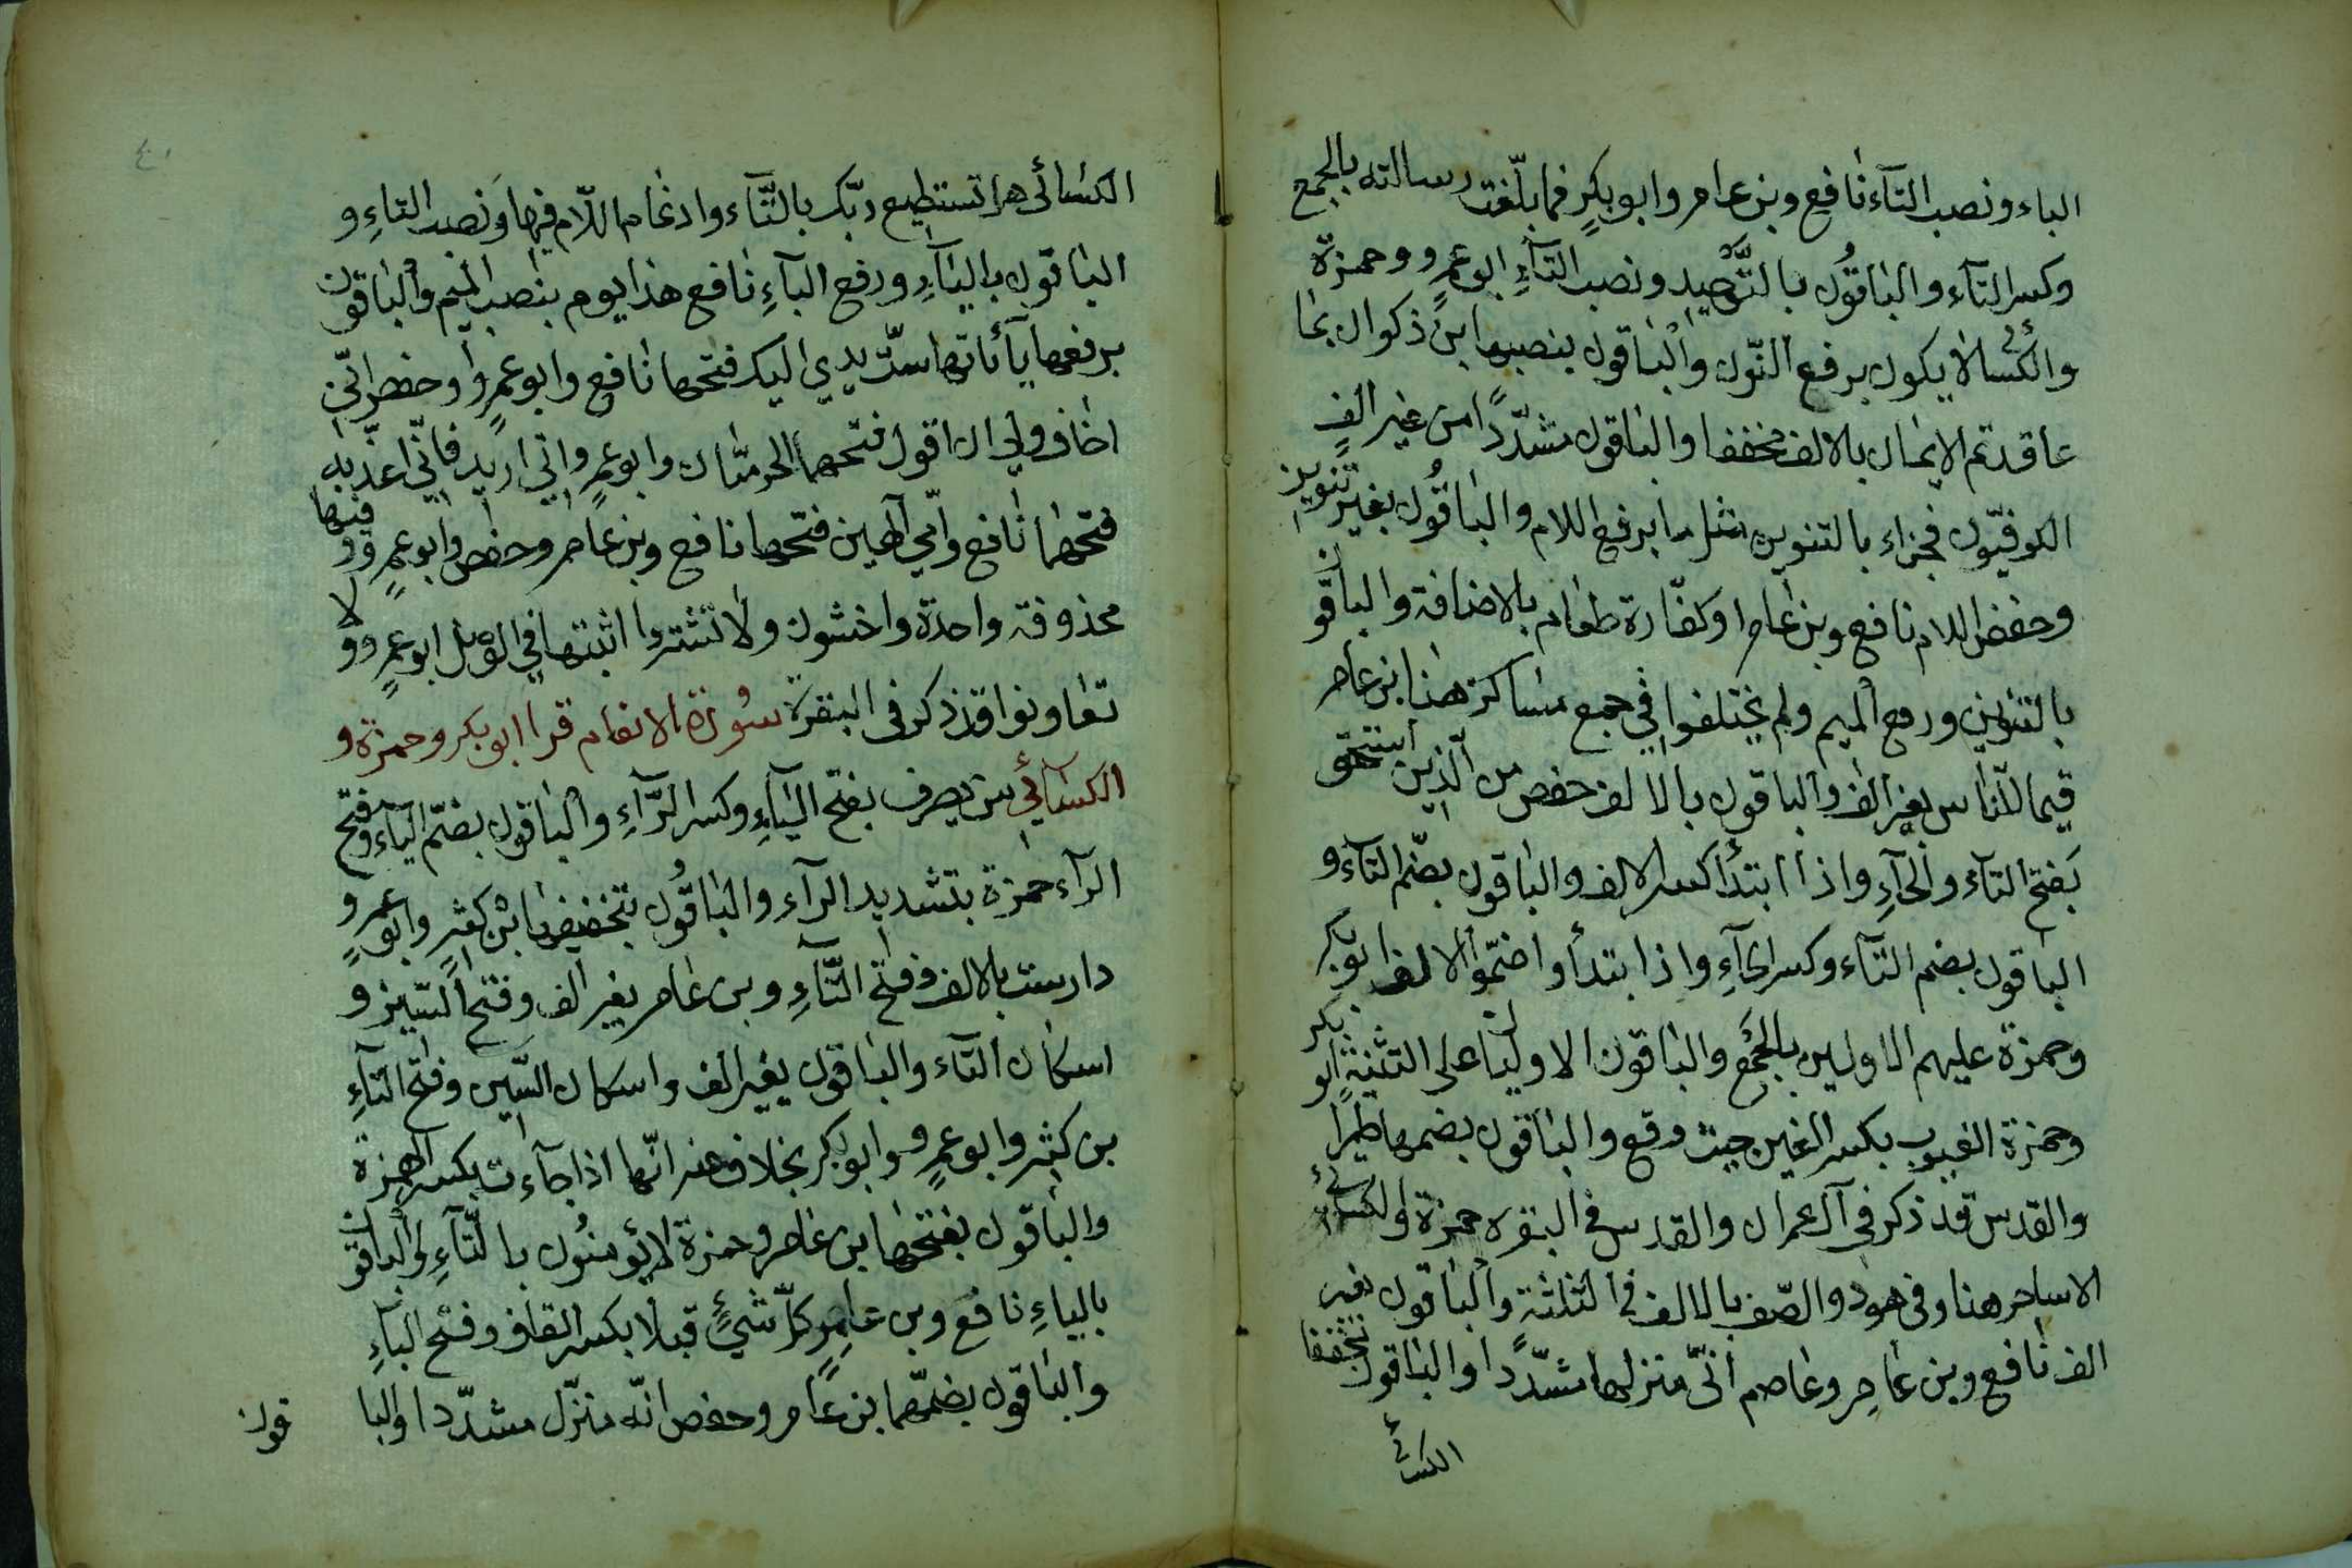 الباء ونصب التآء نافع وبن عامر وابو بكرٍ فما بلّغت رسالته بالجمع
وكسر التآء والباقُون بالتّوحيد ونصب التآءِ ابو عمرٍو وحمزة
والكسائى الا يكون برفع النّون والباقون بنصبها ابن ذكوان بما
عاقدتم الايمان بالالف مخففا والباقون مشدّدًا من غير الفٍ
الكوفيّون فجزاء بالتنوين مثل ما برفع اللام والباقُون بغير تنوين
وخفض اللام نافع وبن عامر او كفّارة طعام بالاضافة والباقون
بالتنوين ورفع الميم ولم يختلفوا في جمع مساكن هنا ابن عامر
قيما للنّاس بغير الف والباقون بالالف حفص من الذين استحق
بفتح التآء والحآءِ واذا ابتدأ كسر الالف والباقون بضمّ التآء و
الباقون بضم التآء وكسر الحآءِ واذا ابتدأوا ضمّوا الالف ابو بكر
وحمزة عليهم الاولين بالجَمع والباقون الاوليان على التثنية ابو بكر
وحمزة الغيوب بكسر الغين حيث وقع والباقون بضمها طيرا
والقدس قد ذكر في آل عمران والقدس في البقره حمزة والكسائى
الا ساحر هنا وفى هود والصّف بالالف في الثلثة والباقون بغير
الف نافع وبن عامر وعاصم انّى منزلها مشدّدًا والباقون مخففا
الكسائى
الكسائى هل تستطيع ربّك بالتّآء وادغام اللّام فيها ونصب التاءِ و
الباقون باليآءِ ورفع البآءِ نافع هذا يوم بنصب الميم والباقون
برفعها يآئاتها ستّ يدي اليك فتحها نافع وابو عمرٍو وحفص انّي
اخاف ولي ان اقول فتحهما الحرميّان وابو عمرٍو واني اريد فانّي اعذّبه
فتحهما نافع وامّي آلهين فتحها نافع وبن عامر وحفص وابو عمرٍو وفيها
محذوفة واحدة واخشون ولا تشتروا اثبتها في الوصل ابو عمرٍو ولا
تعاونوا قد ذكر فى البقرة سُورة الانعام قرا ابو بكر وحمزة و
الكسآئي من يصرف بفتح اليآءِ وكسر الرّآءِ والباقون بضمّ اليآء وفتح
الرآء حمزة بتشديد الرآء والباقُون بتخفيفها ابن كثيرٍ وابو عمرٍو
دارست بالالف وفتح التّآءِ وبن عامر بغير الف وفتح السّين و
اسكان التآء والباقون بغير الف واسكان السّين وفتح التآءِ
بن كثير وابو عمرٍو وابو بكر بخلاف عنه انّها اذا جآءت بكسر الهمزة
والباقون بفتحها بن عامر وحمزة لا يؤمنُون بالتّآءِ والباقون
بالياءِ نافع وبن عامرٍ كلّ شيءٍ قبلا بكسر القاف وفتح البآءِ
والباقون بضمّهما بن عامر وحفص انّه منزّل مشدّدا والبا
قون